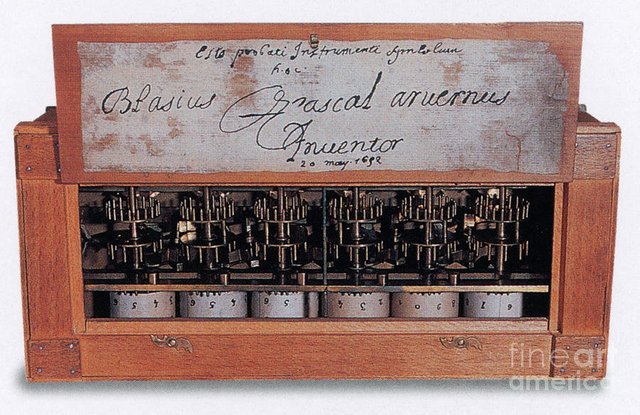 Esto probati Instrumenti Symbolum
hoc
Blasius Pascal arvernus
Inventor
20 may. 1652
5 4
2 3 4 5
5 6
2 3 4
9 0 1
6 7
fineart
america